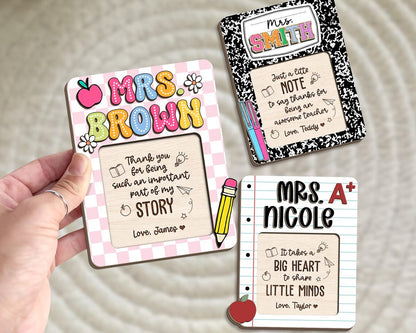 MRS.
BROWN
Thank you
for being
such an important
part of my
STORY
Love, James
Mrs.
SMITH
Just a little
NOTE
to say thanks for
being an
awesome teacher
Love, Teddy
MRS. A+
NICOLE
It takes a
BIG HEART
to shape
LITTLE MINDS
Love, Taylor